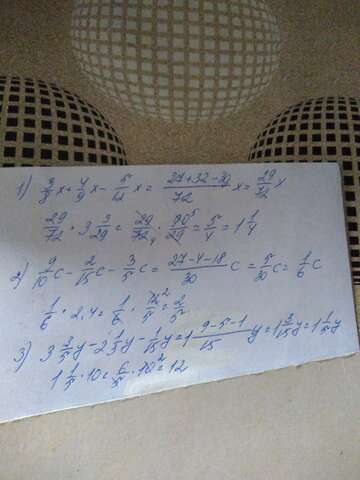 1) 3/8 x + 4/9 x - 5/12 x = (27+32-30)/72 x = 29/72 x
29/72 · 3 3/29 = 29/72₄ · 90⁵/29 = 5/4 = 1 1/4
2) 9/10 c - 2/15 c - 3/5 c = (27-4-18)/30 c = 5/30 c = 1/6 c
1/6 · 2,4 = 1/6 · 12²/5 = 2/5
3) 3 3/5 y - 2 1/3 y - 1/15 y = 1 (9-5-1)/15 y = 1 3/15 y = 1 1/5 y
1 1/5 · 10 = 6/5 · 10² = 12